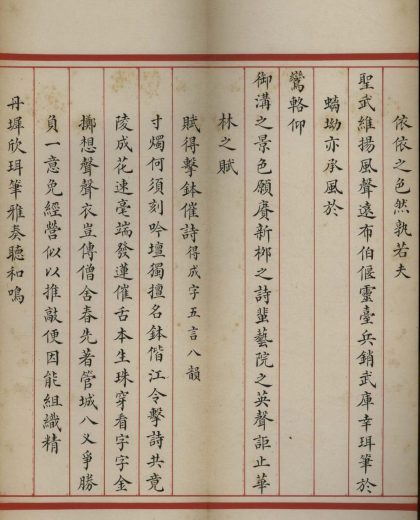 依依之色然孰若夫
聖武維揚風聲遠布伯偃靈臺兵銷武庫幸珥筆於
螭坳亦承風於
鸞輅仰
御溝之景色願賡新柳之詩蜚藝院之英聲詎止華
林之賦
賦得擊鉢催詩得成字五言八韻
寸燭何須刻吟壇獨擅名鉢偕江令擊詩共竟
陵成花速毫端發蓮催舌本生珠穿看字字金
擲想聲聲衣豈傳僧舍春先著管城八叉爭勝
負一意免經營似以推敲便因能組織精
丹墀欣珥筆雅奏聽和鳴